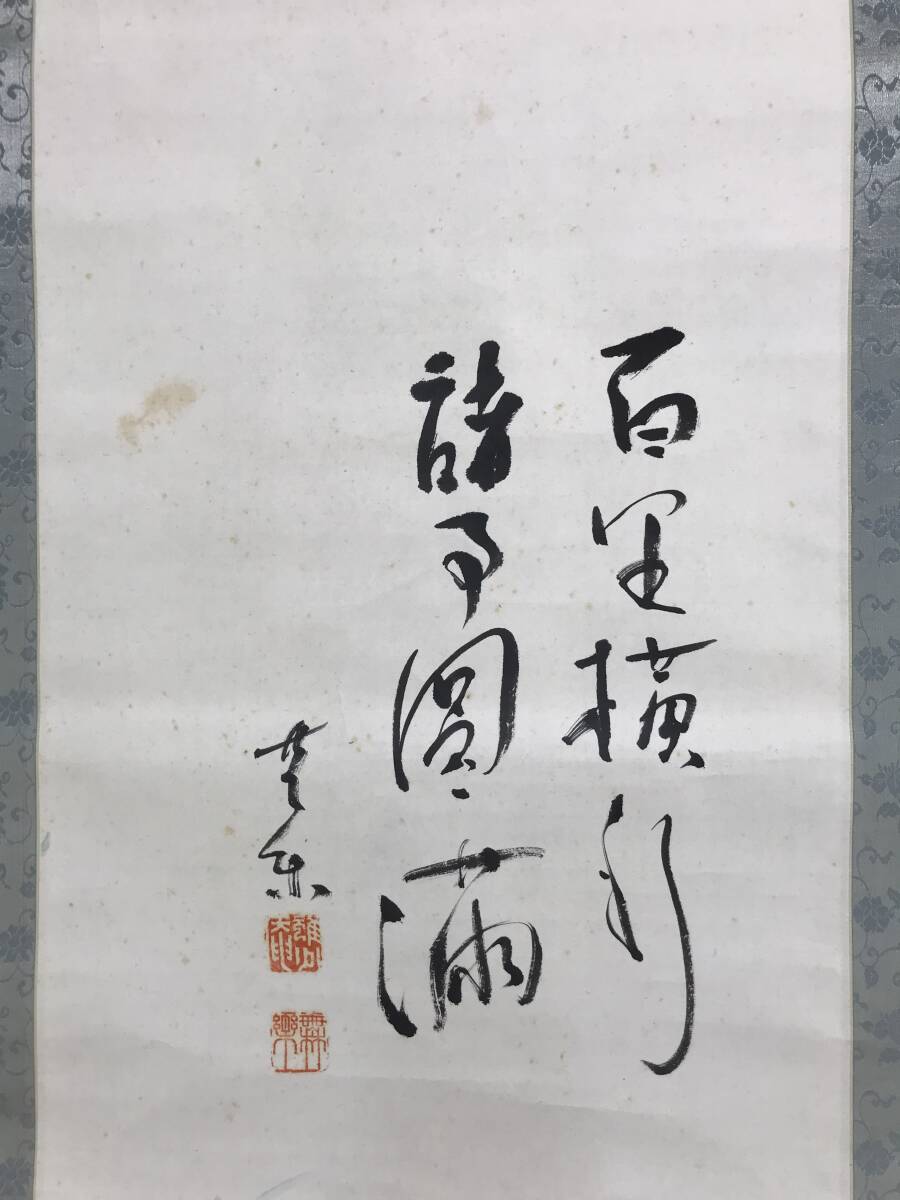 百里横行
諸事圓滿